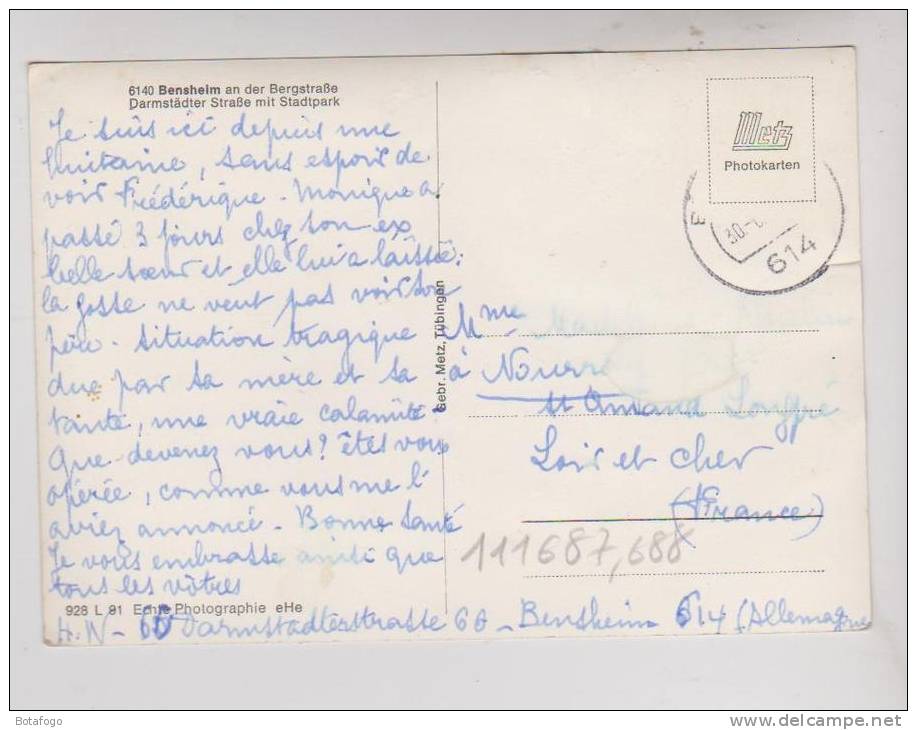 6140 Bensheim an der Bergstraße
Darmstädter Straße mit Stadtpark
Je suis ici depuis une
huitaine, sans espoir de
voir Frédérique - Monique a
passé 3 jours chez son ex
belle sœur et elle lui a laissée:
la gosse ne veut pas voir son
père - situation tragique
due par sa mère et sa
tante, une vraie calamité -
Que devenez vous? êtes vous
opérée, comme vous me l'
aviez annoncé - Bonne santé
Je vous embrasse ainsi que
tous les vôtres
928 L 91 Echte Photographie eHe
H. W - Darmstadterstrasse 66 - Bensheim 614 (Allemagne
Gebr. Metz, Tübingen
Metz
Photokarten
30-
614
Mme
à Nourre
St Amand Longpré
Loir et Cher
(France)
111687,688
Botafogo
www.delcampe.net